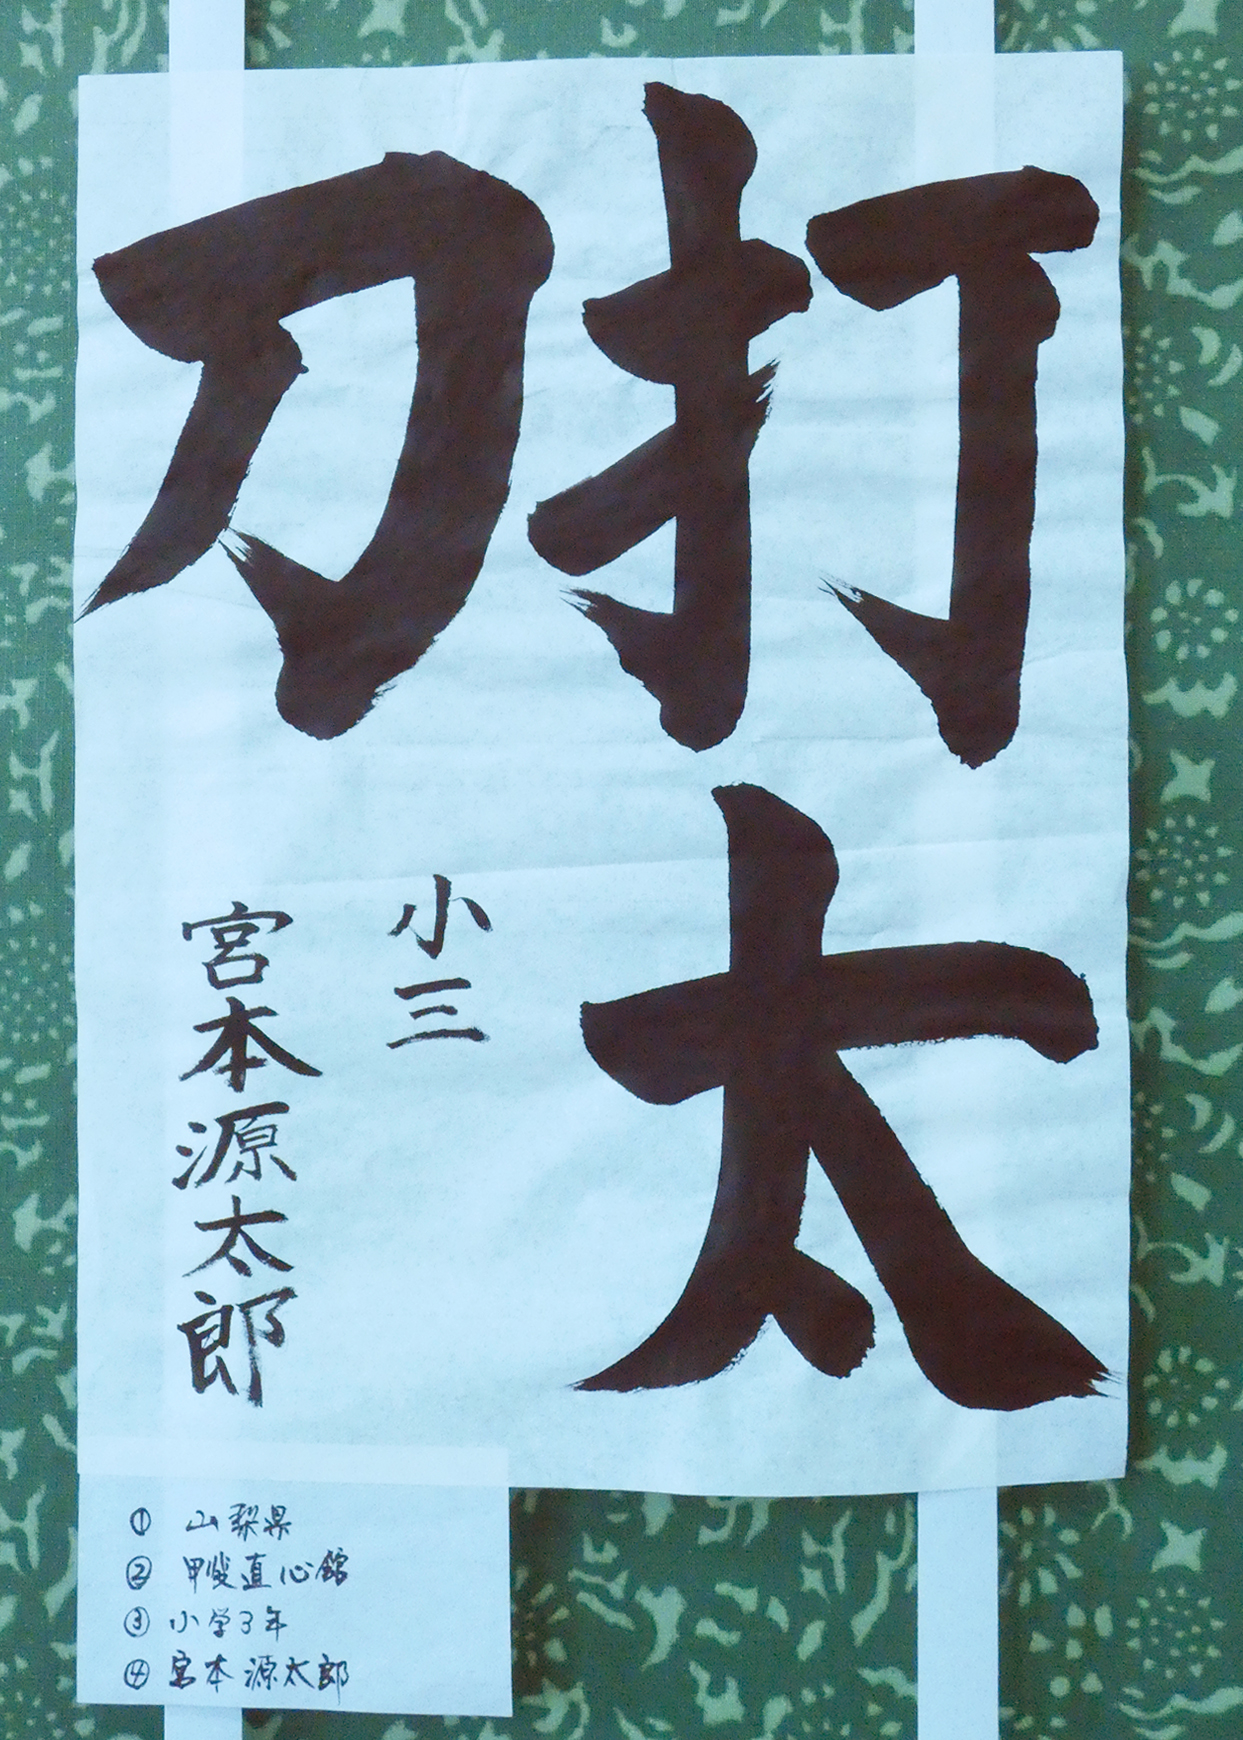 打太
刀
小三
宮本源太郎
① 山梨県
② 甲斐直心館
③ 小学3年
④ 宮本源太郎